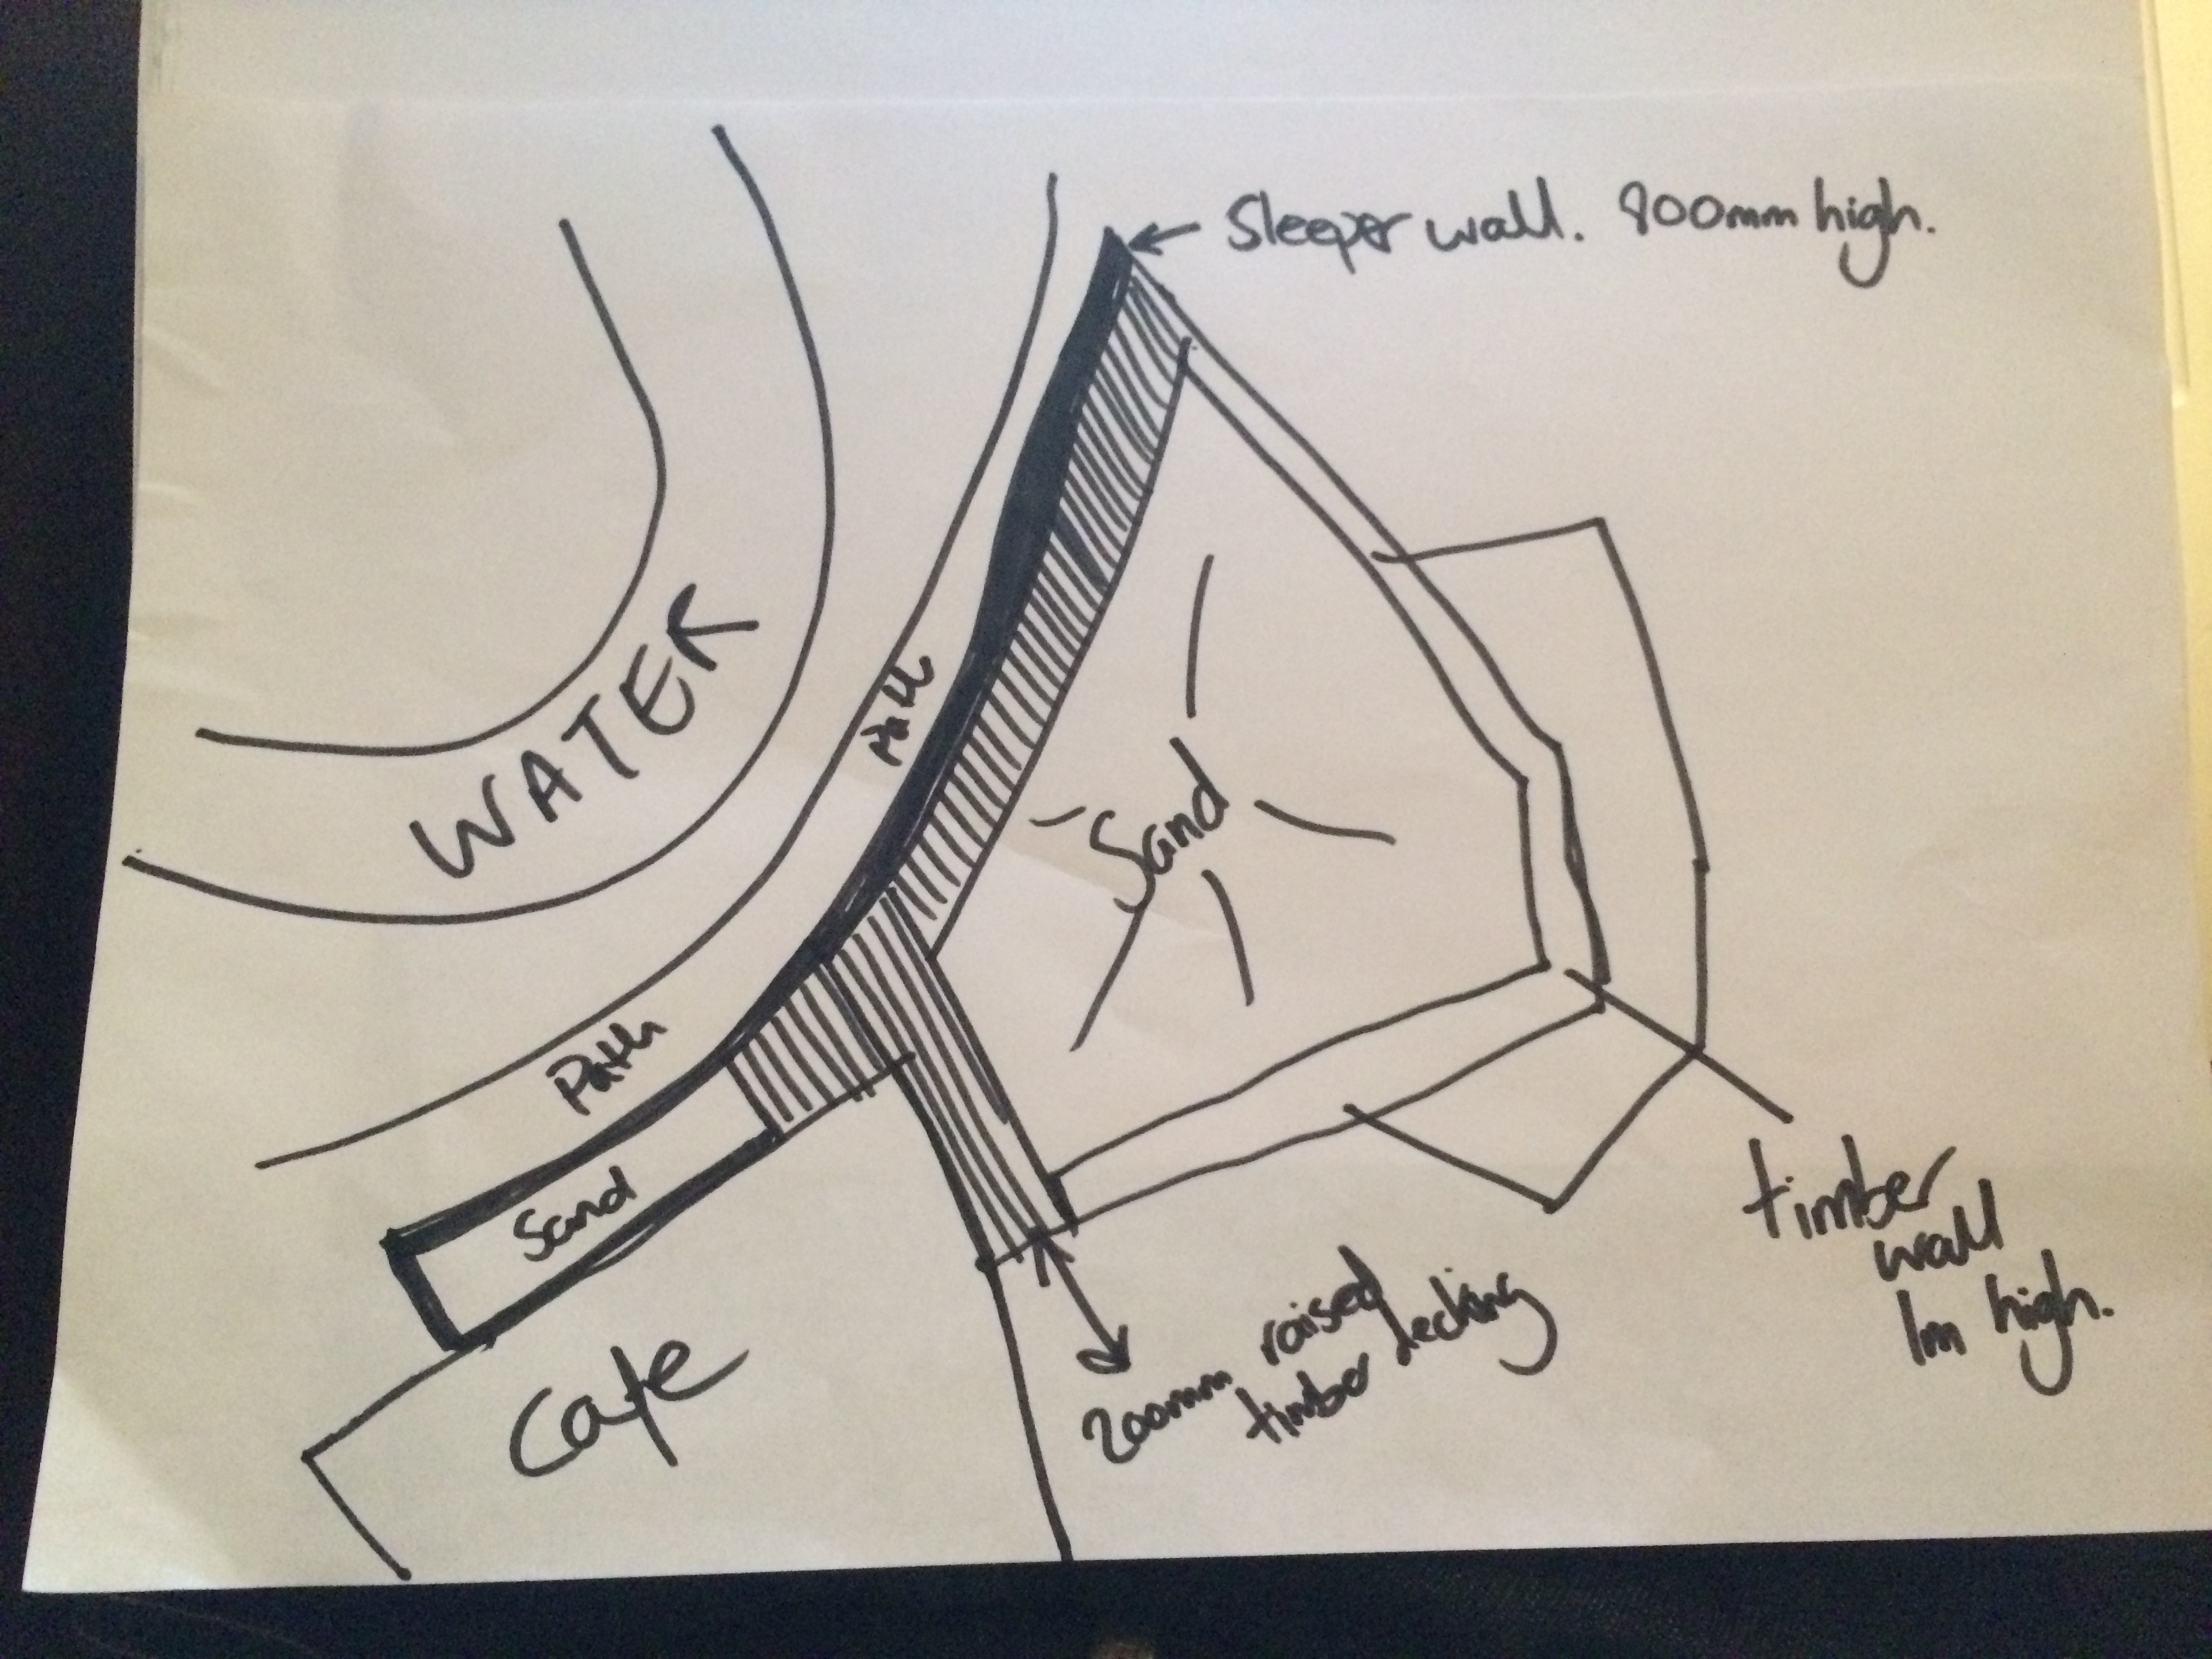 Sleeper wall. 800mm high.
WATER
Path
Sand
Path
Sand
Cafe
200mm raised
timber decking
timber
wall
1m high.